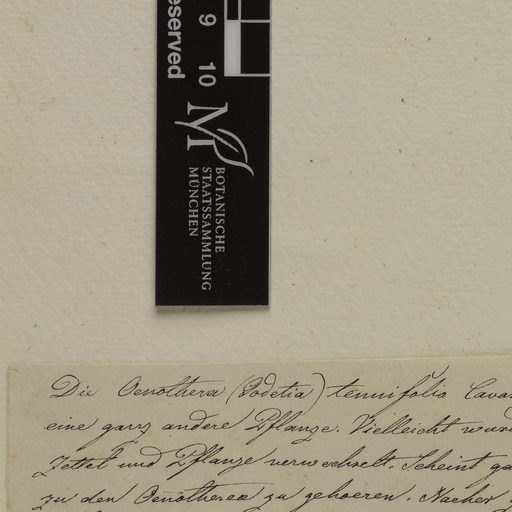 eserved
9 10
BOTANISCHE
STAATSSAMMLUNG
MÜNCHEN
Die Oenothera (Godetia) tennifolia Cava
eine ganz andere Pflanze. Vielleicht wur
Zettel und Pflanze verwechselt. Scheint
zu den Oenotheren zu gehoeren. Nacher